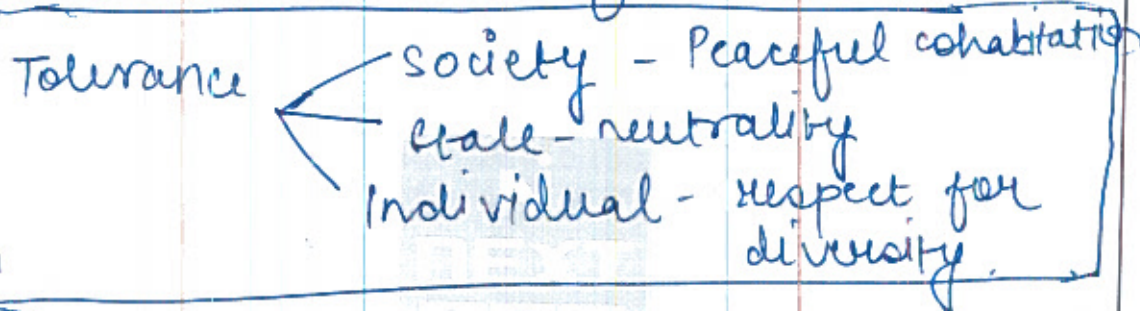 Tolerance
society - Peaceful cohabitation
state - neutrality
Individual - respect for
diversity.